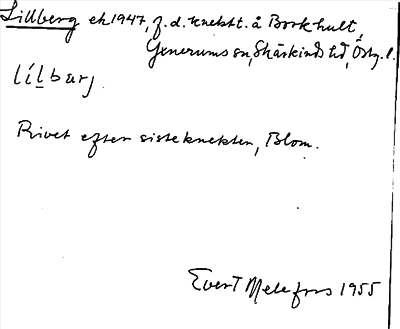 Lillberg ek 1947, f.d. knektt. å Borkhult,
Yxnerums sn, Skärkinds hd, Östg. l.
lílbærj
Rivet efter siste knekten, Blom.
Evert Melefors 1955